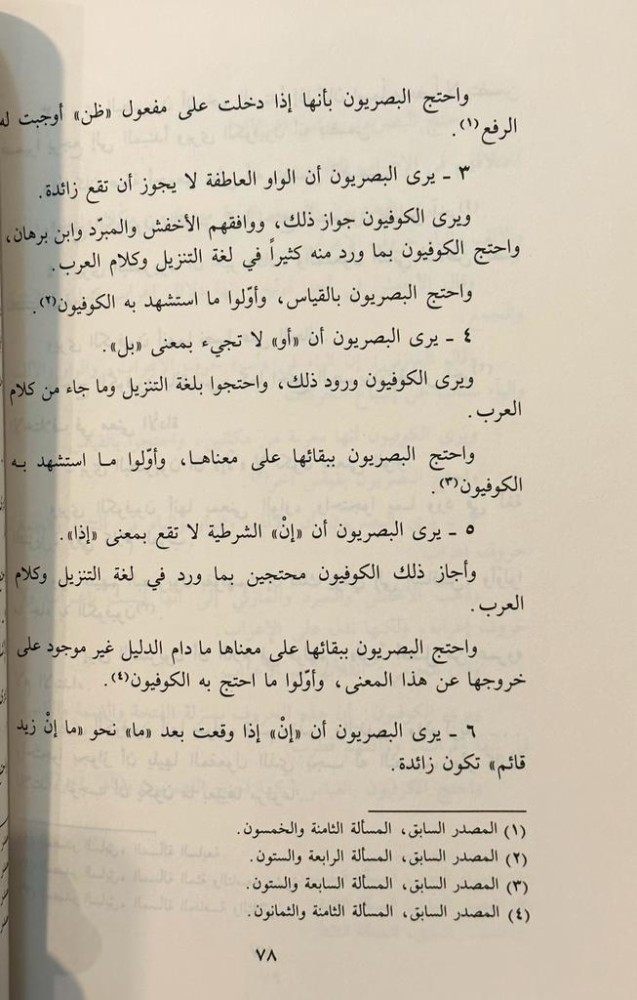 واحتج البصريون بأنها إذا دخلت على مفعول «ظن» أوجبت له
الرفع(١).
٣ ـ يرى البصريون أن الواو العاطفة لا يجوز أن تقع زائدة.
ويرى الكوفيون جواز ذلك، ووافقهم الأخفش والمبرّد وابن برهان،
واحتج الكوفيون بما ورد منه كثيراً في لغة التنزيل وكلام العرب.
واحتج البصريون بالقياس، وأوّلوا ما استشهد به الكوفيون(٢).
٤ ـ يرى البصريون أن «أو» لا تجيء بمعنى «بل».
ويرى الكوفيون ورود ذلك، واحتجوا بلغة التنزيل وما جاء من كلام
العرب.
واحتج البصريون ببقائها على معناها، وأوّلوا ما استشهد به
الكوفيون(٣).
٥ ـ يرى البصريون أن «إنْ» الشرطية لا تقع بمعنى «إذا».
وأجاز ذلك الكوفيون محتجين بما ورد في لغة التنزيل وكلام
العرب.
واحتج البصريون ببقائها على معناها ما دام الدليل غير موجود على
خروجها عن هذا المعنى، وأوّلوا ما احتج به الكوفيون(٤).
٦ ـ يرى البصريون أن «إنْ» إذا وقعت بعد «ما» نحو «ما إنْ زيد
قائم» تكون زائدة.
(١) المصدر السابق، المسألة الثامنة والخمسون.
(٢) المصدر السابق، المسألة الرابعة والستون.
(٣) المصدر السابق، المسألة السابعة والستون.
(٤) المصدر السابق، المسألة الثامنة والثمانون.
٧٨